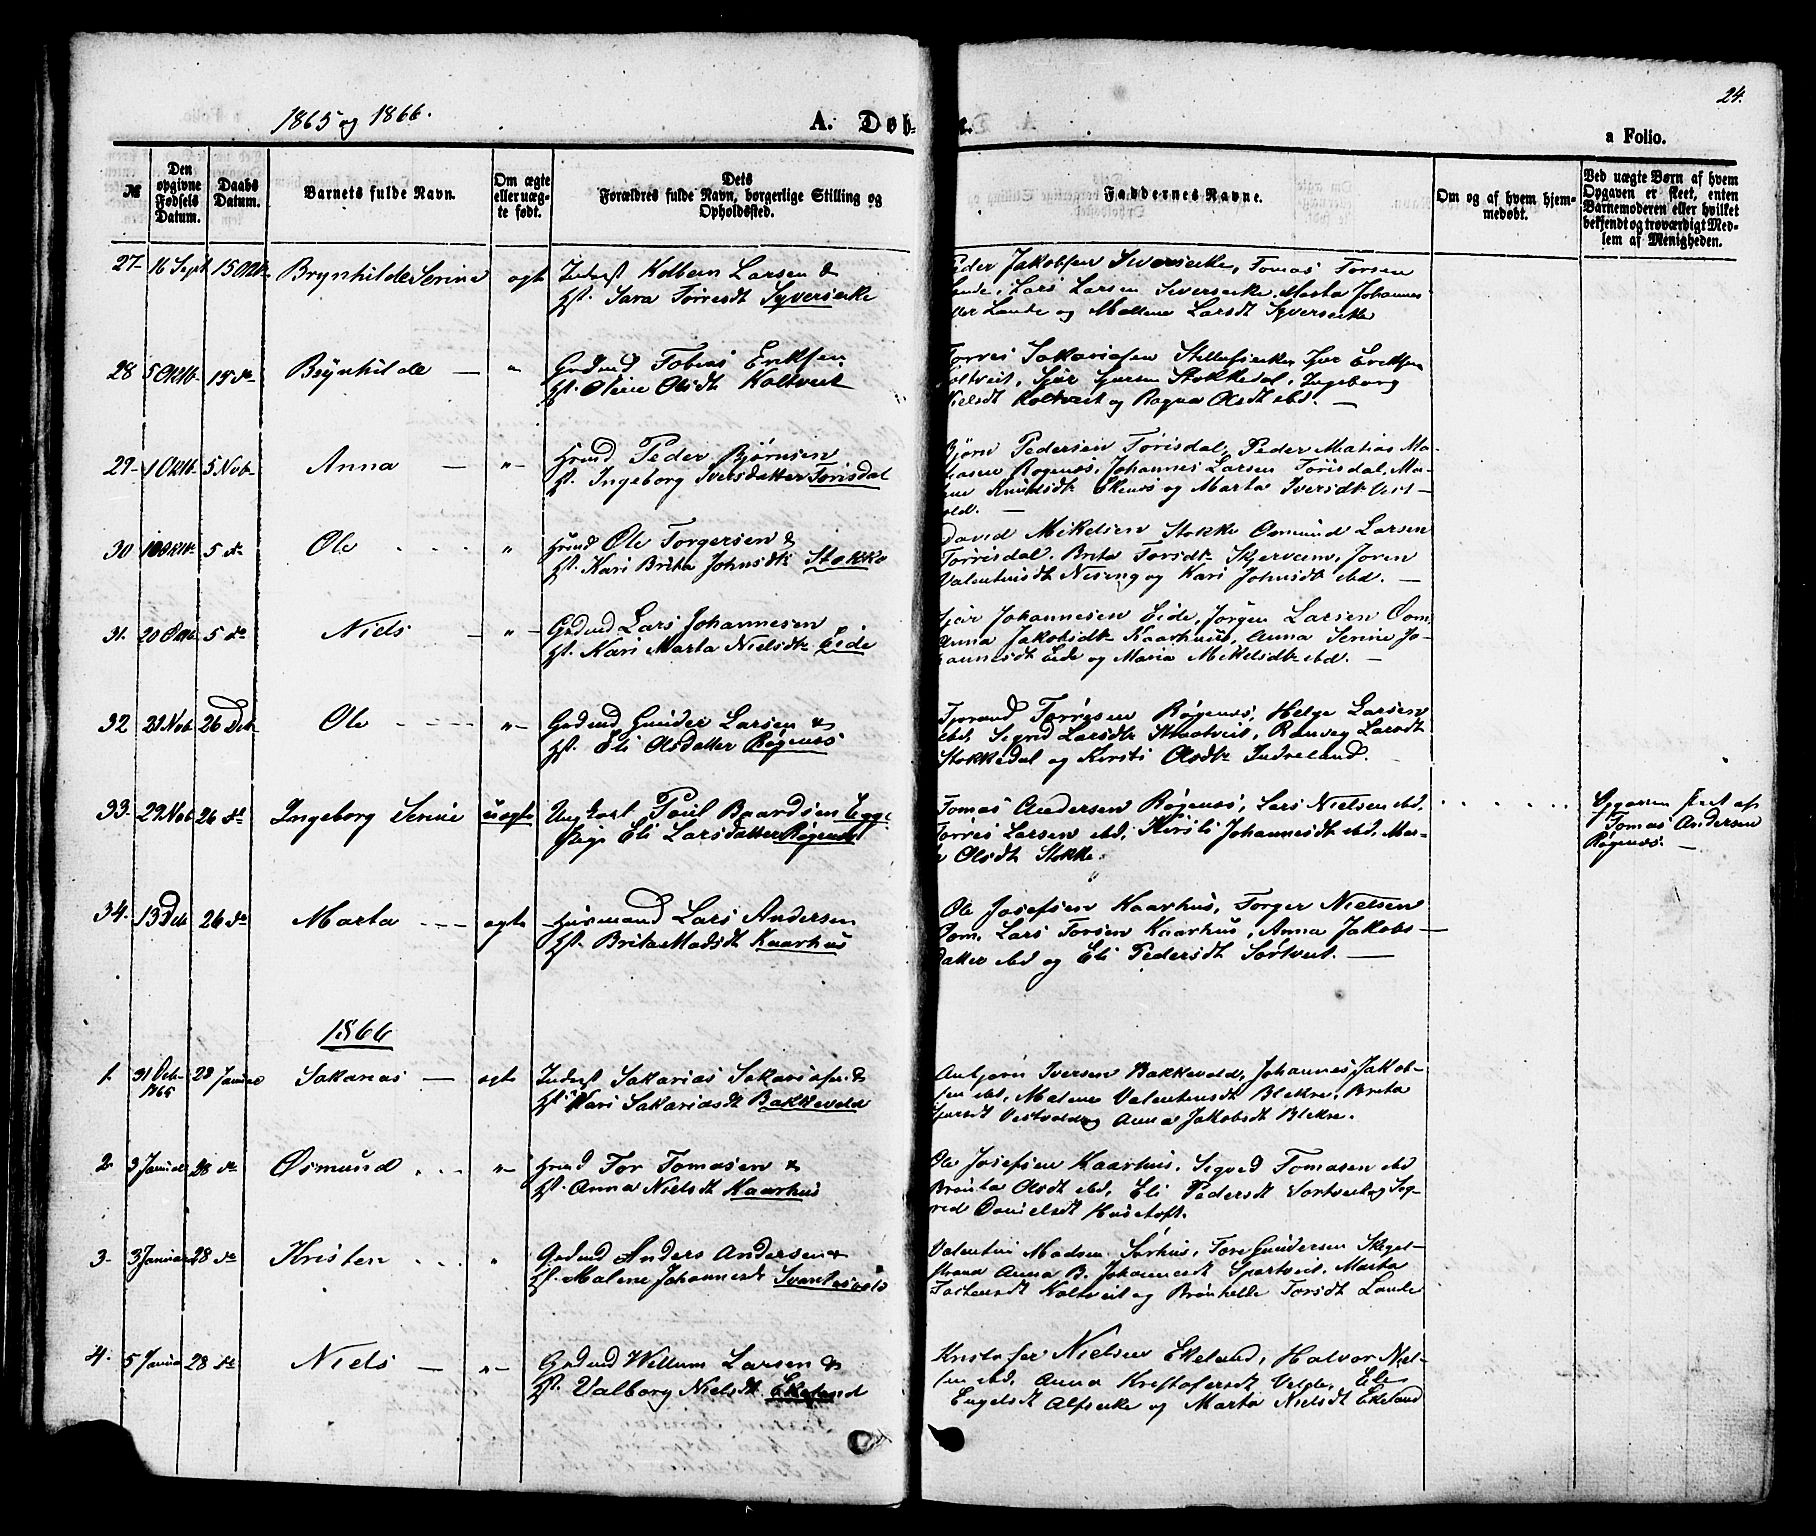 24.
1865 og 1866.
A. Døb-
e.
a Folio.
№
Den opgivne Fødsels Datum.
Daabs Datum.
Barnets fulde Navn.
Om ægte eller uægte født.
Dets Forældres fulde Navn, borgerlige Stilling og Opholdssted.
Faddernes Navne.
Om og af hvem hjemmedøbt.
Ved uægte Børn af hvem Opgaven er skeet, enten Barnemoderen eller hvilket bekjendt og troværdigt Medlem af Menigheden.
27- 16 Sept 15 Oktb- Brynhilde Serine egte Inderst Kolbein Larsen &
H. Sara Torresdt Syversække
Peder Jakobsen Siversække, Tomas Torsen
Lande, Lars Larsen Siversække, Marta Johannes
datter Lande og Mallene Larsdt Syversække
28 5 Oktb- 15 do Brynhilde — " Grdmd Tobias Eriksen
H. Oline Olsdt Koltveit
Torres Sakariasen Erikson
Koltveit, Sjur Sjursen Stokkedal, Ingeborg
Nielsdt Koltveit og Ragna Olsdt ibd. —
29- 1 Oktb- 5 Nvb- Anna — " Hrmd Peder Bjørnsen
H. Ingeborg Iversdatter Torisdal
Bjørn Pedersen Torisdal, Peder Matias Ma-
Røgenes, Johannes Larsen Torisdal, Ma-
Knudsdt Ekenes og Marta Iversdt Vest-
vold. —
30 10 Oktb- 5 do Ole " Hrmd Ole Torgersen &
H. Kari Brita Johnsdt Stokke
David Mikelsen Stokke Osmund Larsen
Torrisdal, Brita Torsdt Skjerveim, Joren
Valentinsdt Neseng og Kari Johnsdt ibd. —
31. 20 Oktb. 5 do Niels — " Grdmd Lars Johannesen
H. Kari Marta Nielsdt Eide
Sjur Johannesen Eide, Jørgen Larsen Oom
Anna Jakobsdt Kaarhuus, Anna Serine Jo-
hannesdt Eide og Maria Mikelsdt ibd. —
32 23 Nvb 26 Deb- Ole " Grdmd Gunder Larsen &
H. Eli Olsdatter Røgenes
Tjerand Torresen Røgenes, Helge Larsen
ibd, Sigred Larsdt Ranveg Larsdt
Stokkedal og Kirsti Olsdt Indreland.
33. 29 Nvb 26 do Ingeborg Serine uegte Ungkarl Poul Baardsen Egge
Pige Eli Larsdatter Røgenes
Tomas Andersen Røgenes, Lars Nielsen ibd.
Torres Larsen ibd, Kirsti Johannesdt ibd. Mar-
Olsdt Stokke.
Opgaven skeet af
Tomas Andersen
Røgenes. —
34. 13 Deb 26 do Marta egte Husmand Lars Andersen
H. Brita Madsdt Kaarhus
Ole Josefsen Kaarhus, Torger Nielsen
Oom, Lars Torsen Kaarhus, Anna Jakobs-
datter ibd og Eli Pedersdt Sørtveit. —
1866
1. 31 Deb- 1865 28 Januar Sakarias — egte Inderst Sakarias Sakariasen &
H. Kari Sakariasdt Bakkevold
Anbjørn Iversen Bakkevold, Johannes Jakob-
sen ibd, Malene Valentinsdt Blekre, Brita
Sjursdt Vestvold og Anna Jakobsdt Blekre.
2. 3 Januar 28 do Osmund " Hrmd Tor Tomasen &
H. Anna Nielsdt Kaarhus
Ole Josefsen Kaarhus, Sigved Tomasen ibd
Brønla Olsdt ibd, Eli Pedersdt Sortveit og Sig-
red Danielsdt Husetoft.
3. 3 Januar 28 do Kristen " Grdmd Anders Andersen &
H. Malene Johannesdt
Valentin Madsen Aarhus, Tore Gundersen Skegel-
strand Anna B. Johannesdt Sportveit, Marta
Tostensdt Koltveit og Brønhilde Torsdt Lande
4. 5 Januar 28 do Niels — " Grdmd Willum Larsen &
H. Valborg Nielsdt Ekeland
Kristofer Nielsen Ekeland, Halvor Niel-
sen ibd, Anna Kristofersdt Velde, Eli
Engelsdt Alfsække og Marta Nielsdt Ekeland